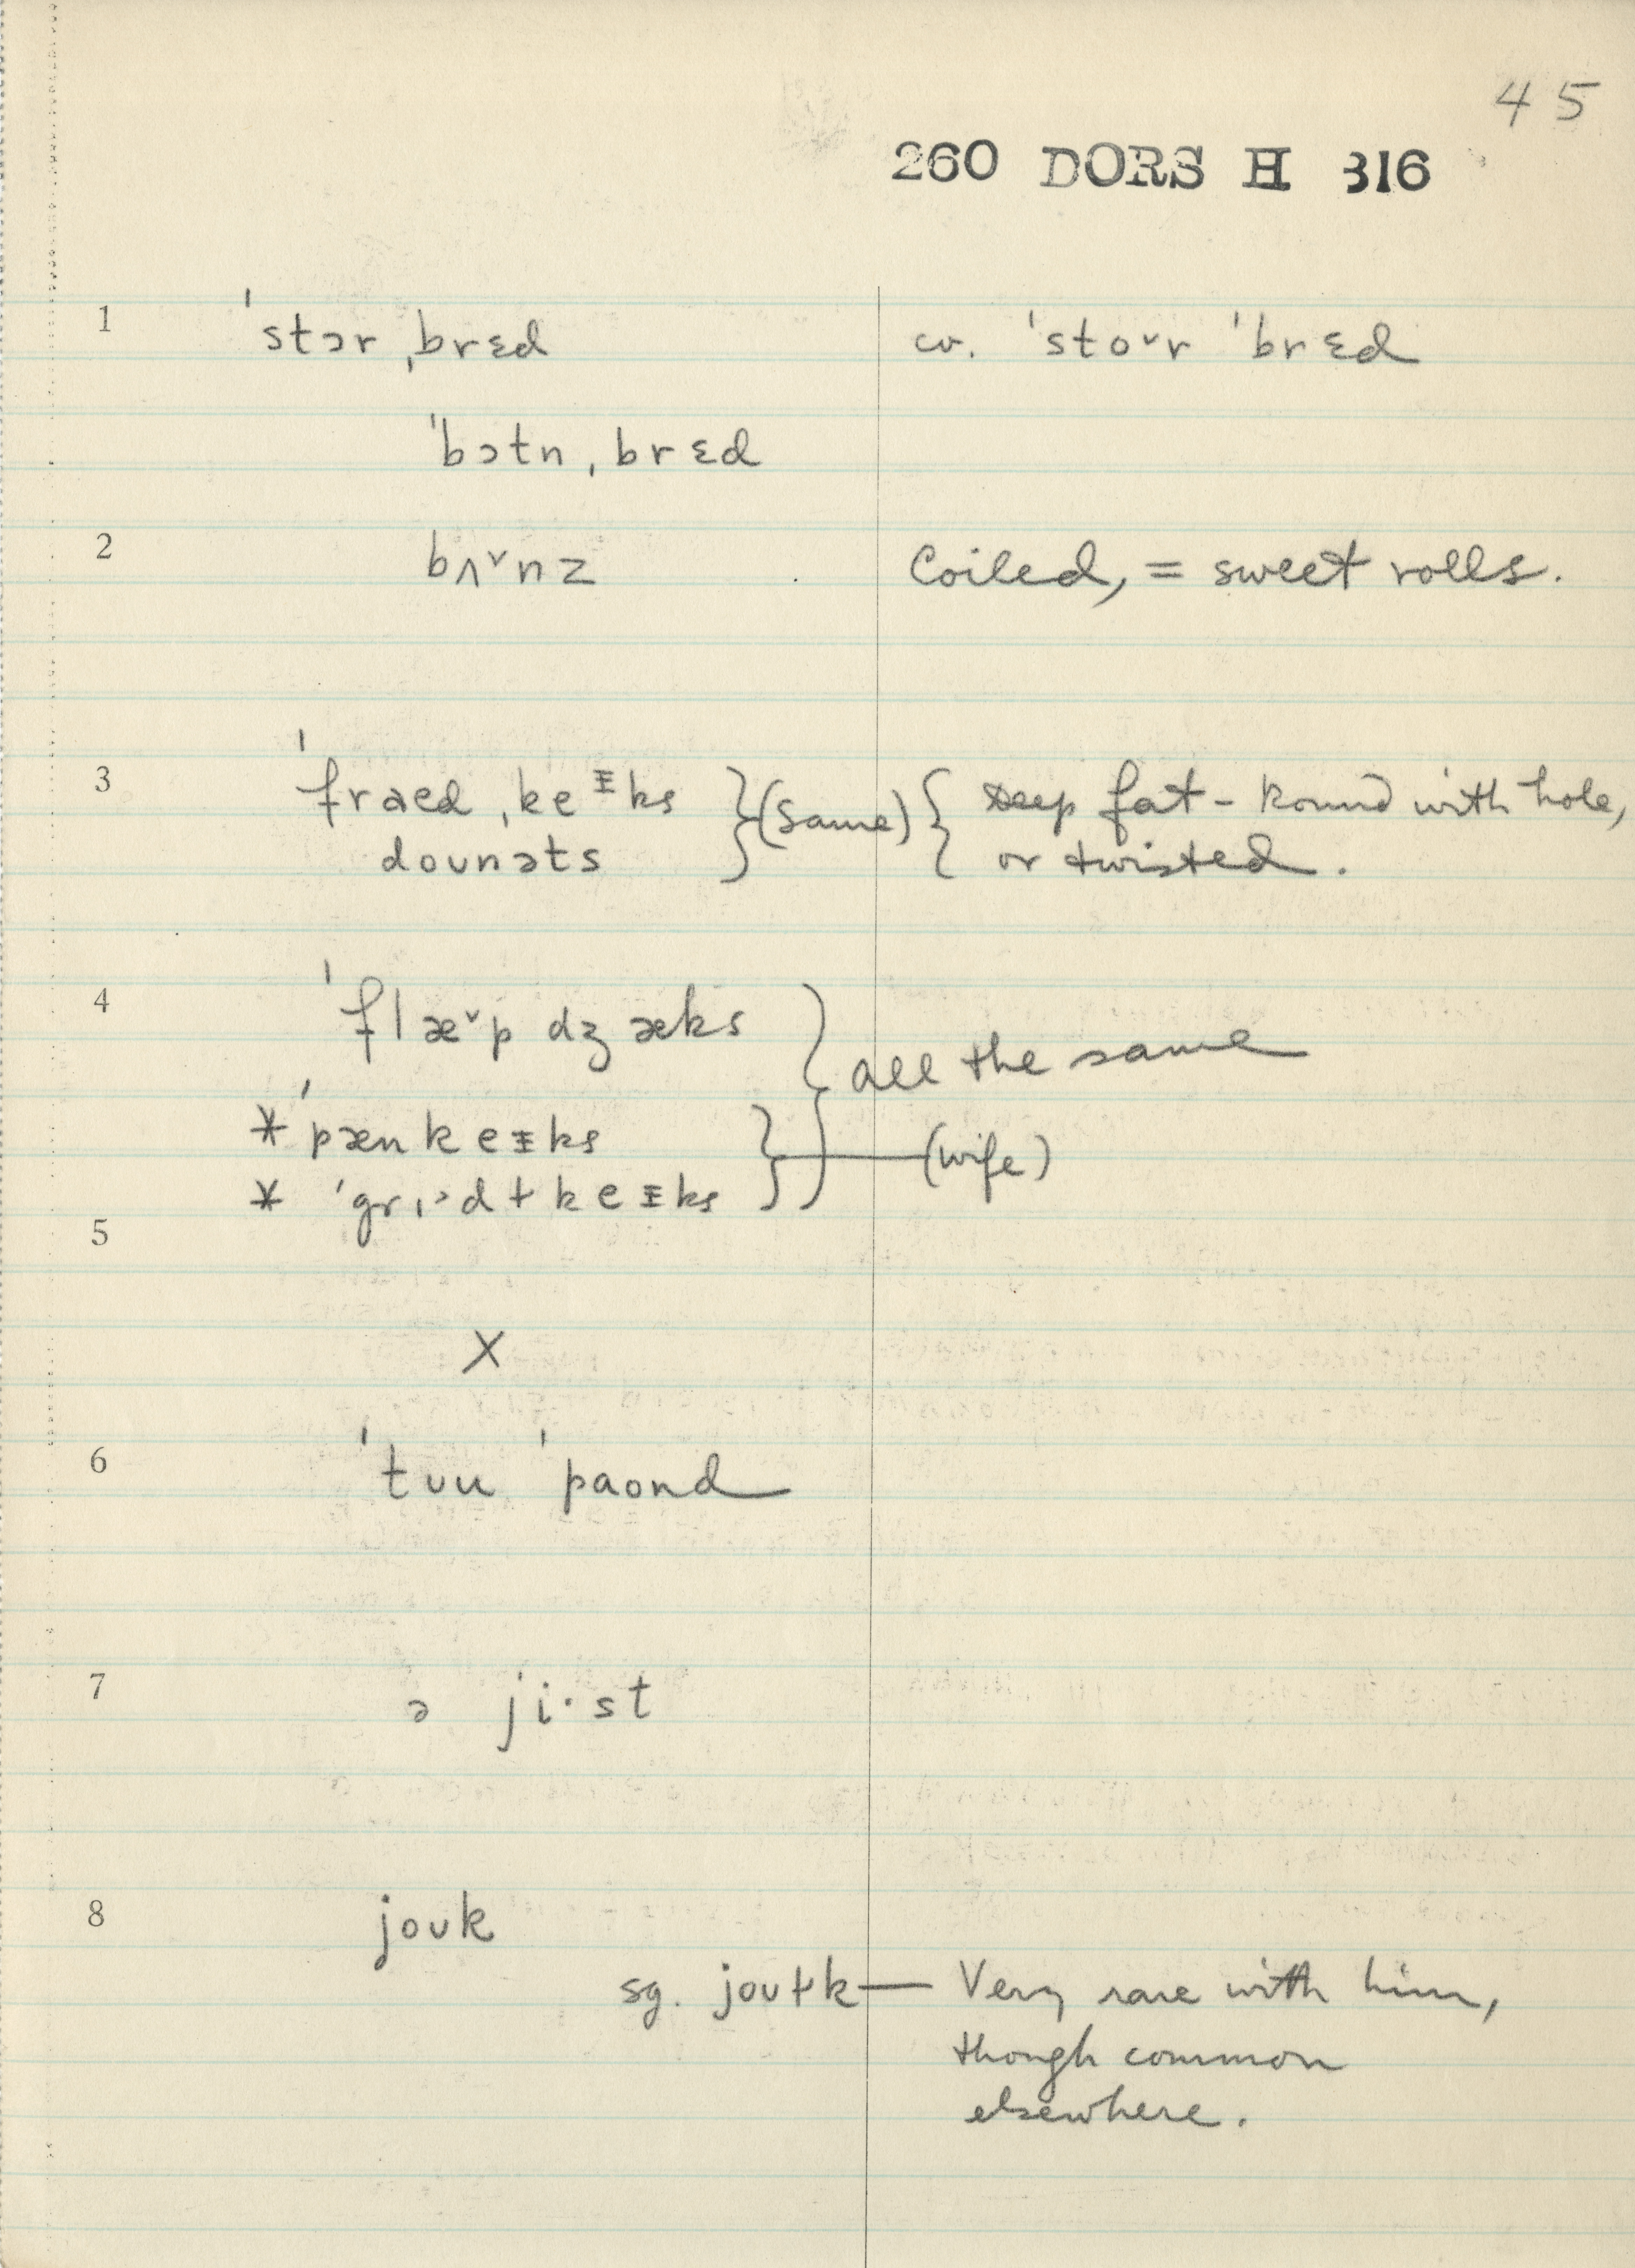 45
260 DORS H 316
1 ˈstɔr ˌbrɛd cv. ˈstoˇr ˈbrɛd
ˈbɔtn ˌbrɛd
2 bʌˇnz Coiled, = sweet rolls.
3 ˈfraed ˌkeᵻks } (same) { deep fat - Round with hole,
dounəts or twisted.
4 ˈflæˇp dʒæks } all the same
* ˈpænkeᵻks } (wife)
* ˈgrɪ˃dɫkeᵻks
5
X
6 ˈtʊu ˈpaond
7 ə ji·st
8 jouk
sg. jouɫk — Very rare with him,
though common
elsewhere.